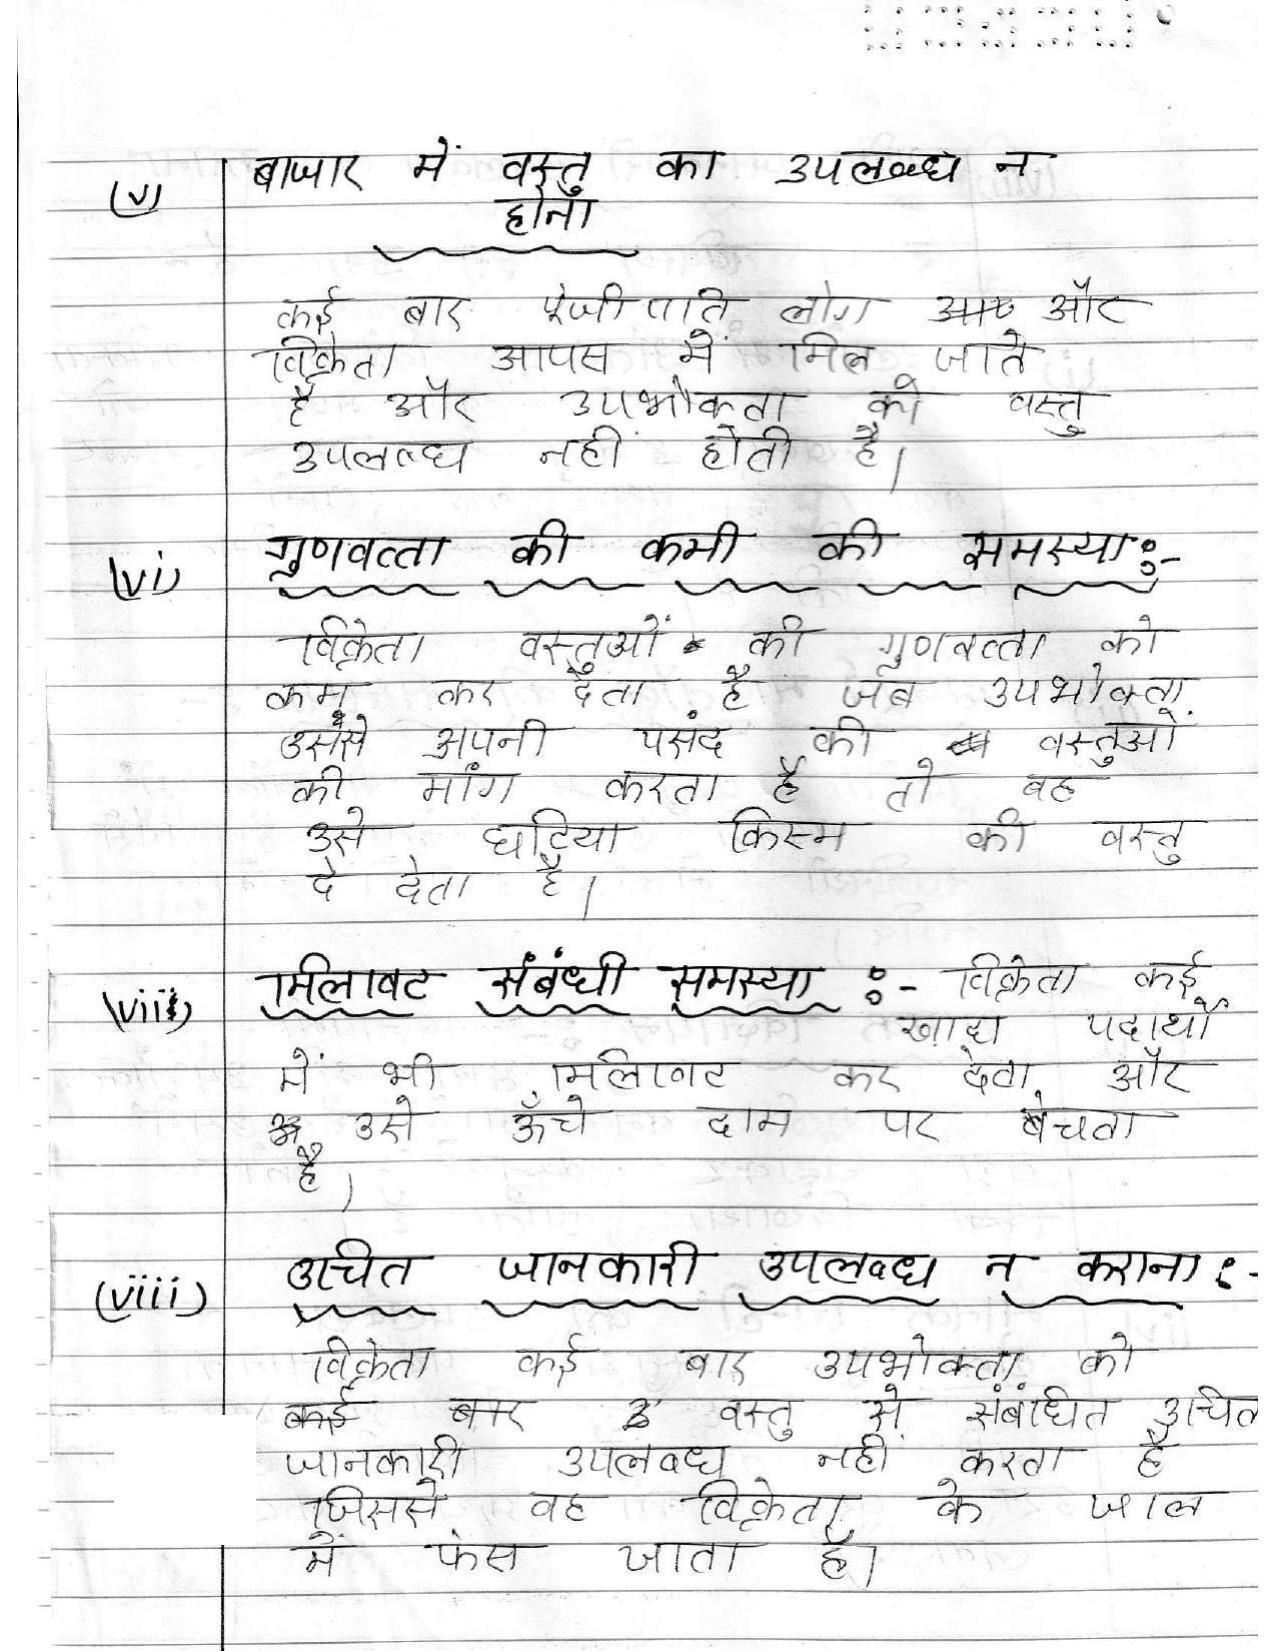 (v) बाजार में वस्तु का उपलब्ध न
होना
कई बार पूंजीपति लोग और
विक्रेता आपस में मिल जाते
है और उपभोक्ता को वस्तु
उपलब्ध नहीं होती है।
(vi) गुणवत्ता की कमी की समस्या :-
विक्रेता वस्तुओं की गुणवत्ता को
कम कर देता है जब उपभोक्ता
उससे अपनी पसंद की वस्तुओं
की मांग करता है तो वह
उसे घटिया किस्म की वस्तु
दे देता है।
(vii) मिलावट संबंधी समस्या :- विक्रेता कई
खाद्य पदार्थों
में भी मिलावट कर देता और
उसे ऊँचे दाम पर बेचता
है।
(viii) उचित जानकारी उपलब्ध न कराना :-
विक्रेता कई बार उपभोक्ता को
कई बार वस्तु से संबंधित उचित
जानकारी उपलब्ध नहीं करता है
जिससे वह विक्रेता के जाल
में फंस जाता है।